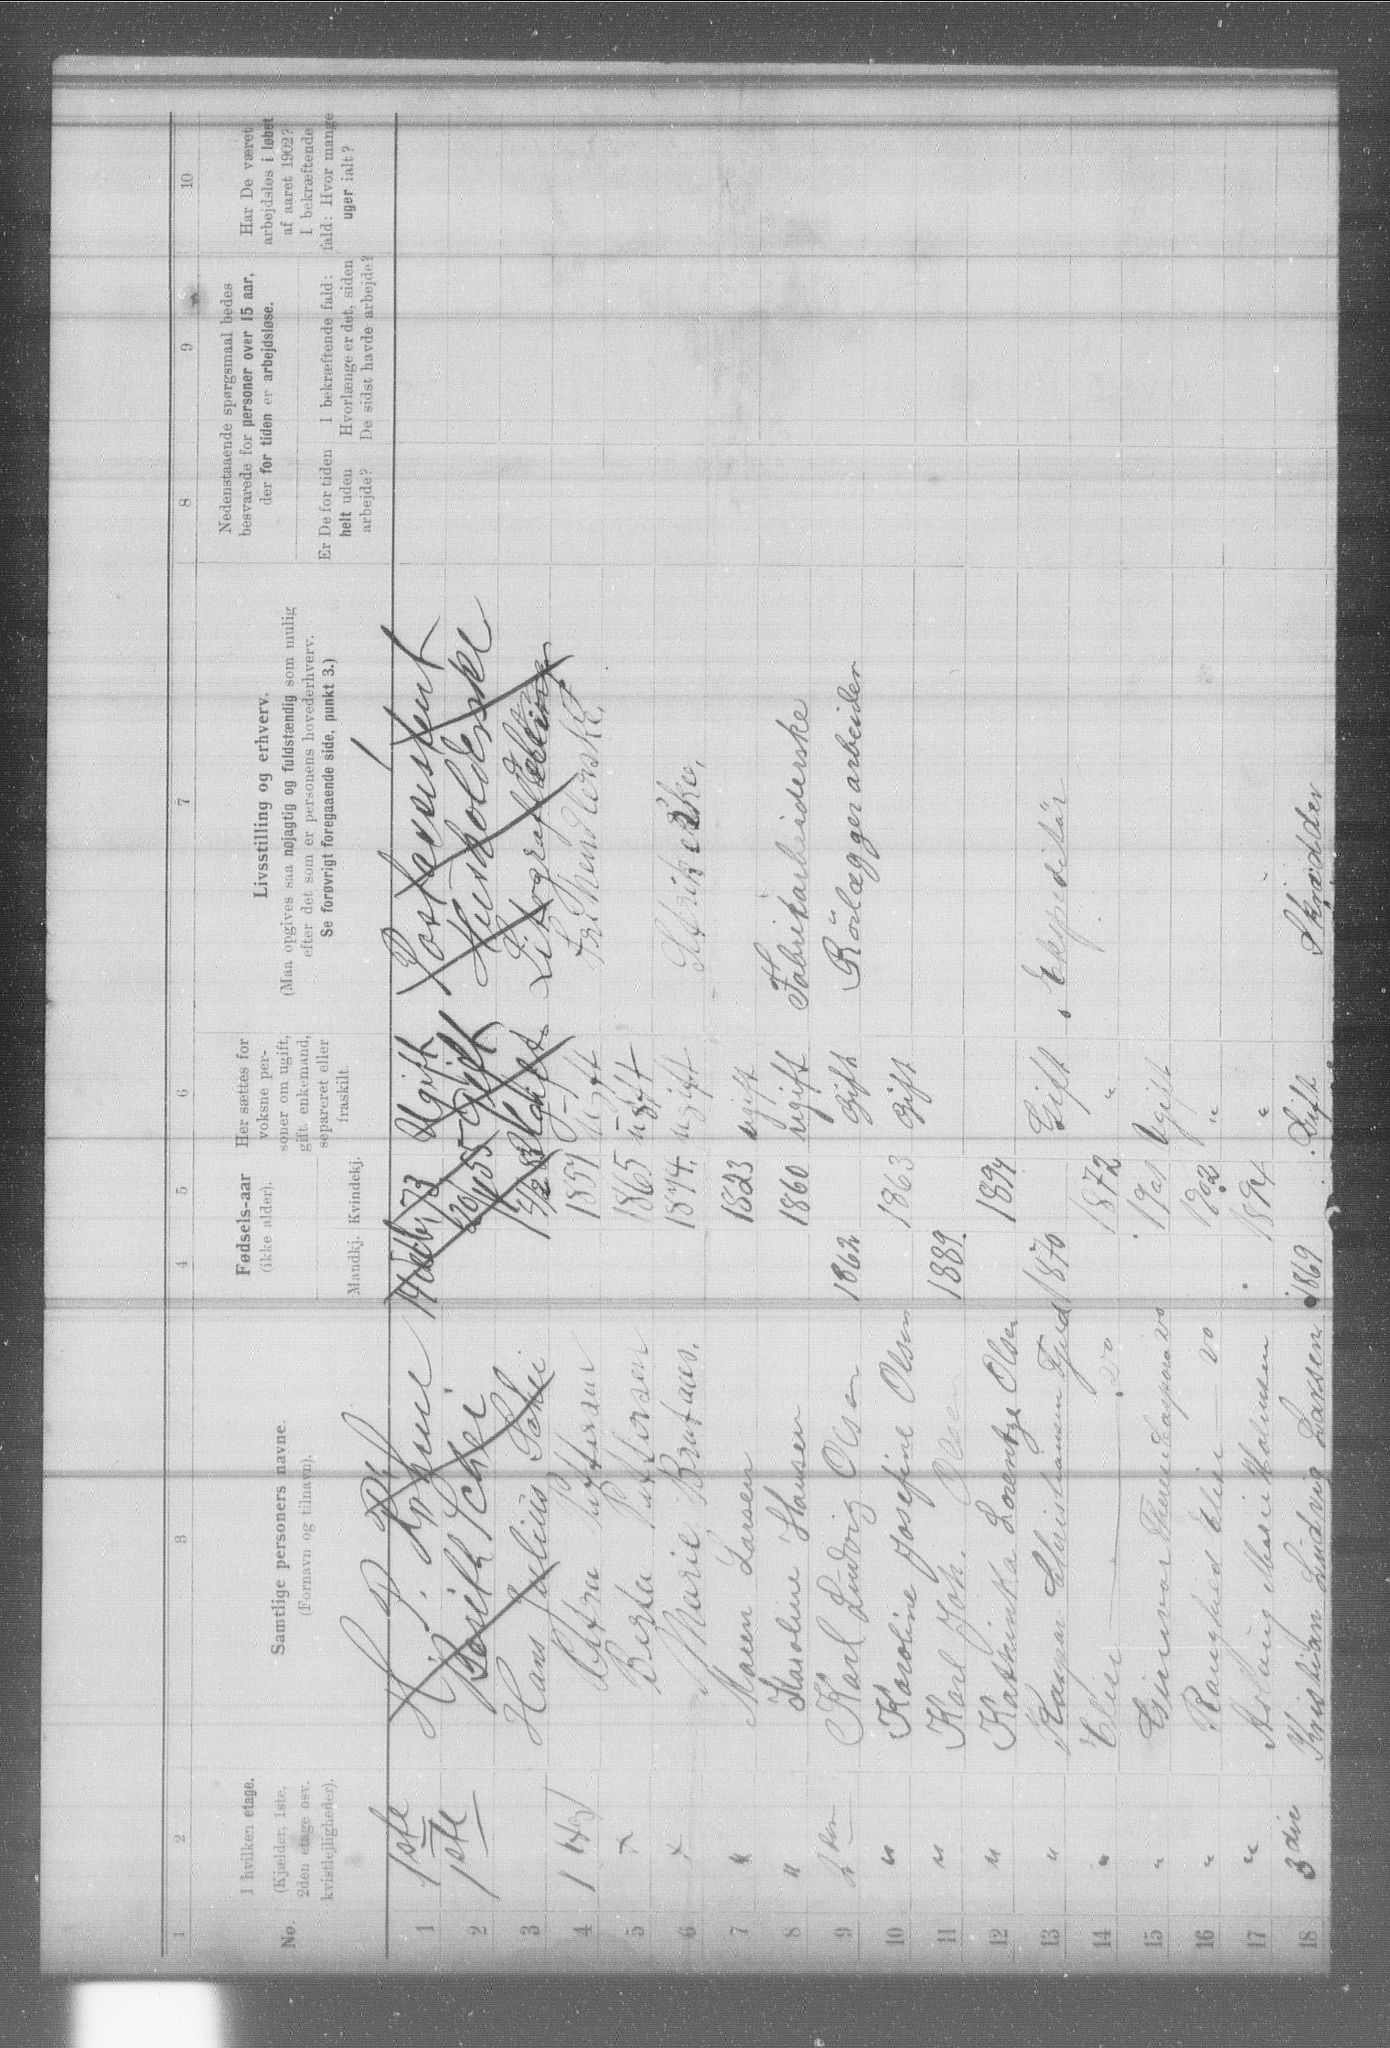 1 2 3 4 5 6 7 8 9 10
No.
I hvilken etage.
(Kjælder, 1ste,
2den etage osv.
kvistlejligheder).
Samtlige personers navne.
(Fornavn og tilnavn).
Fødsels-aar
(ikke alder).
Mandkj. Kvindekj.
Her sættes for
voksne per-
soner om ugift,
gift, enkemand,
separeret eller
fraskilt.
Livsstilling og erhverv.
(Maa opgives saa nøjagtig og fuldstændig som mulig
efter det som er personens hovederhverv.
Se forøvrigt foregaaende side, punkt 3.)
Nedenstaaende spørgsmaal bedes
besvarede for personer over 15 aar,
der for tiden er arbejdsløse.
Er De for tiden
helt uden
arbejde?
I bekræftende fald:
Hvorlænge er det, siden
De sidst havde arbejde?
Har De været
arbejdsløs i løbet
af aaret 1902?
I bekræftende
fald: Hvor mange
uger ialt?
1 1ste H. P. 73 Ugift
2 1ste Schei 55 Gift Husholderske
3 Hans Julius Schei Litograf
4 1 1857 ugift
5 Berta 1865 ugift
6 Marie 1874. ugift
7 " Maren Larsen 1823 ugift
8 " Karoline Hansen 1860 ugift Fabrikarbeiderske
9 2den Karl Ludvig Olsen 1862 Gift Rörlægger arbeider
10 " Karoline Josefine Olsen 1863 Gift
11 " Karl Joh. Olsen 1889.
12 " Kathinka Lorentze Olsen 1894
13 " Kaspar Christiansen 1870 Gift Ekspeditör
14 " Elise do 1872 "
15 " 1901 Ugift
16 " Ragnhild Elise do 1902 "
17 " Aslaug Marie 1894 "
18 3die Kristian Ludvig Larsen 1869 Gift Skrædder